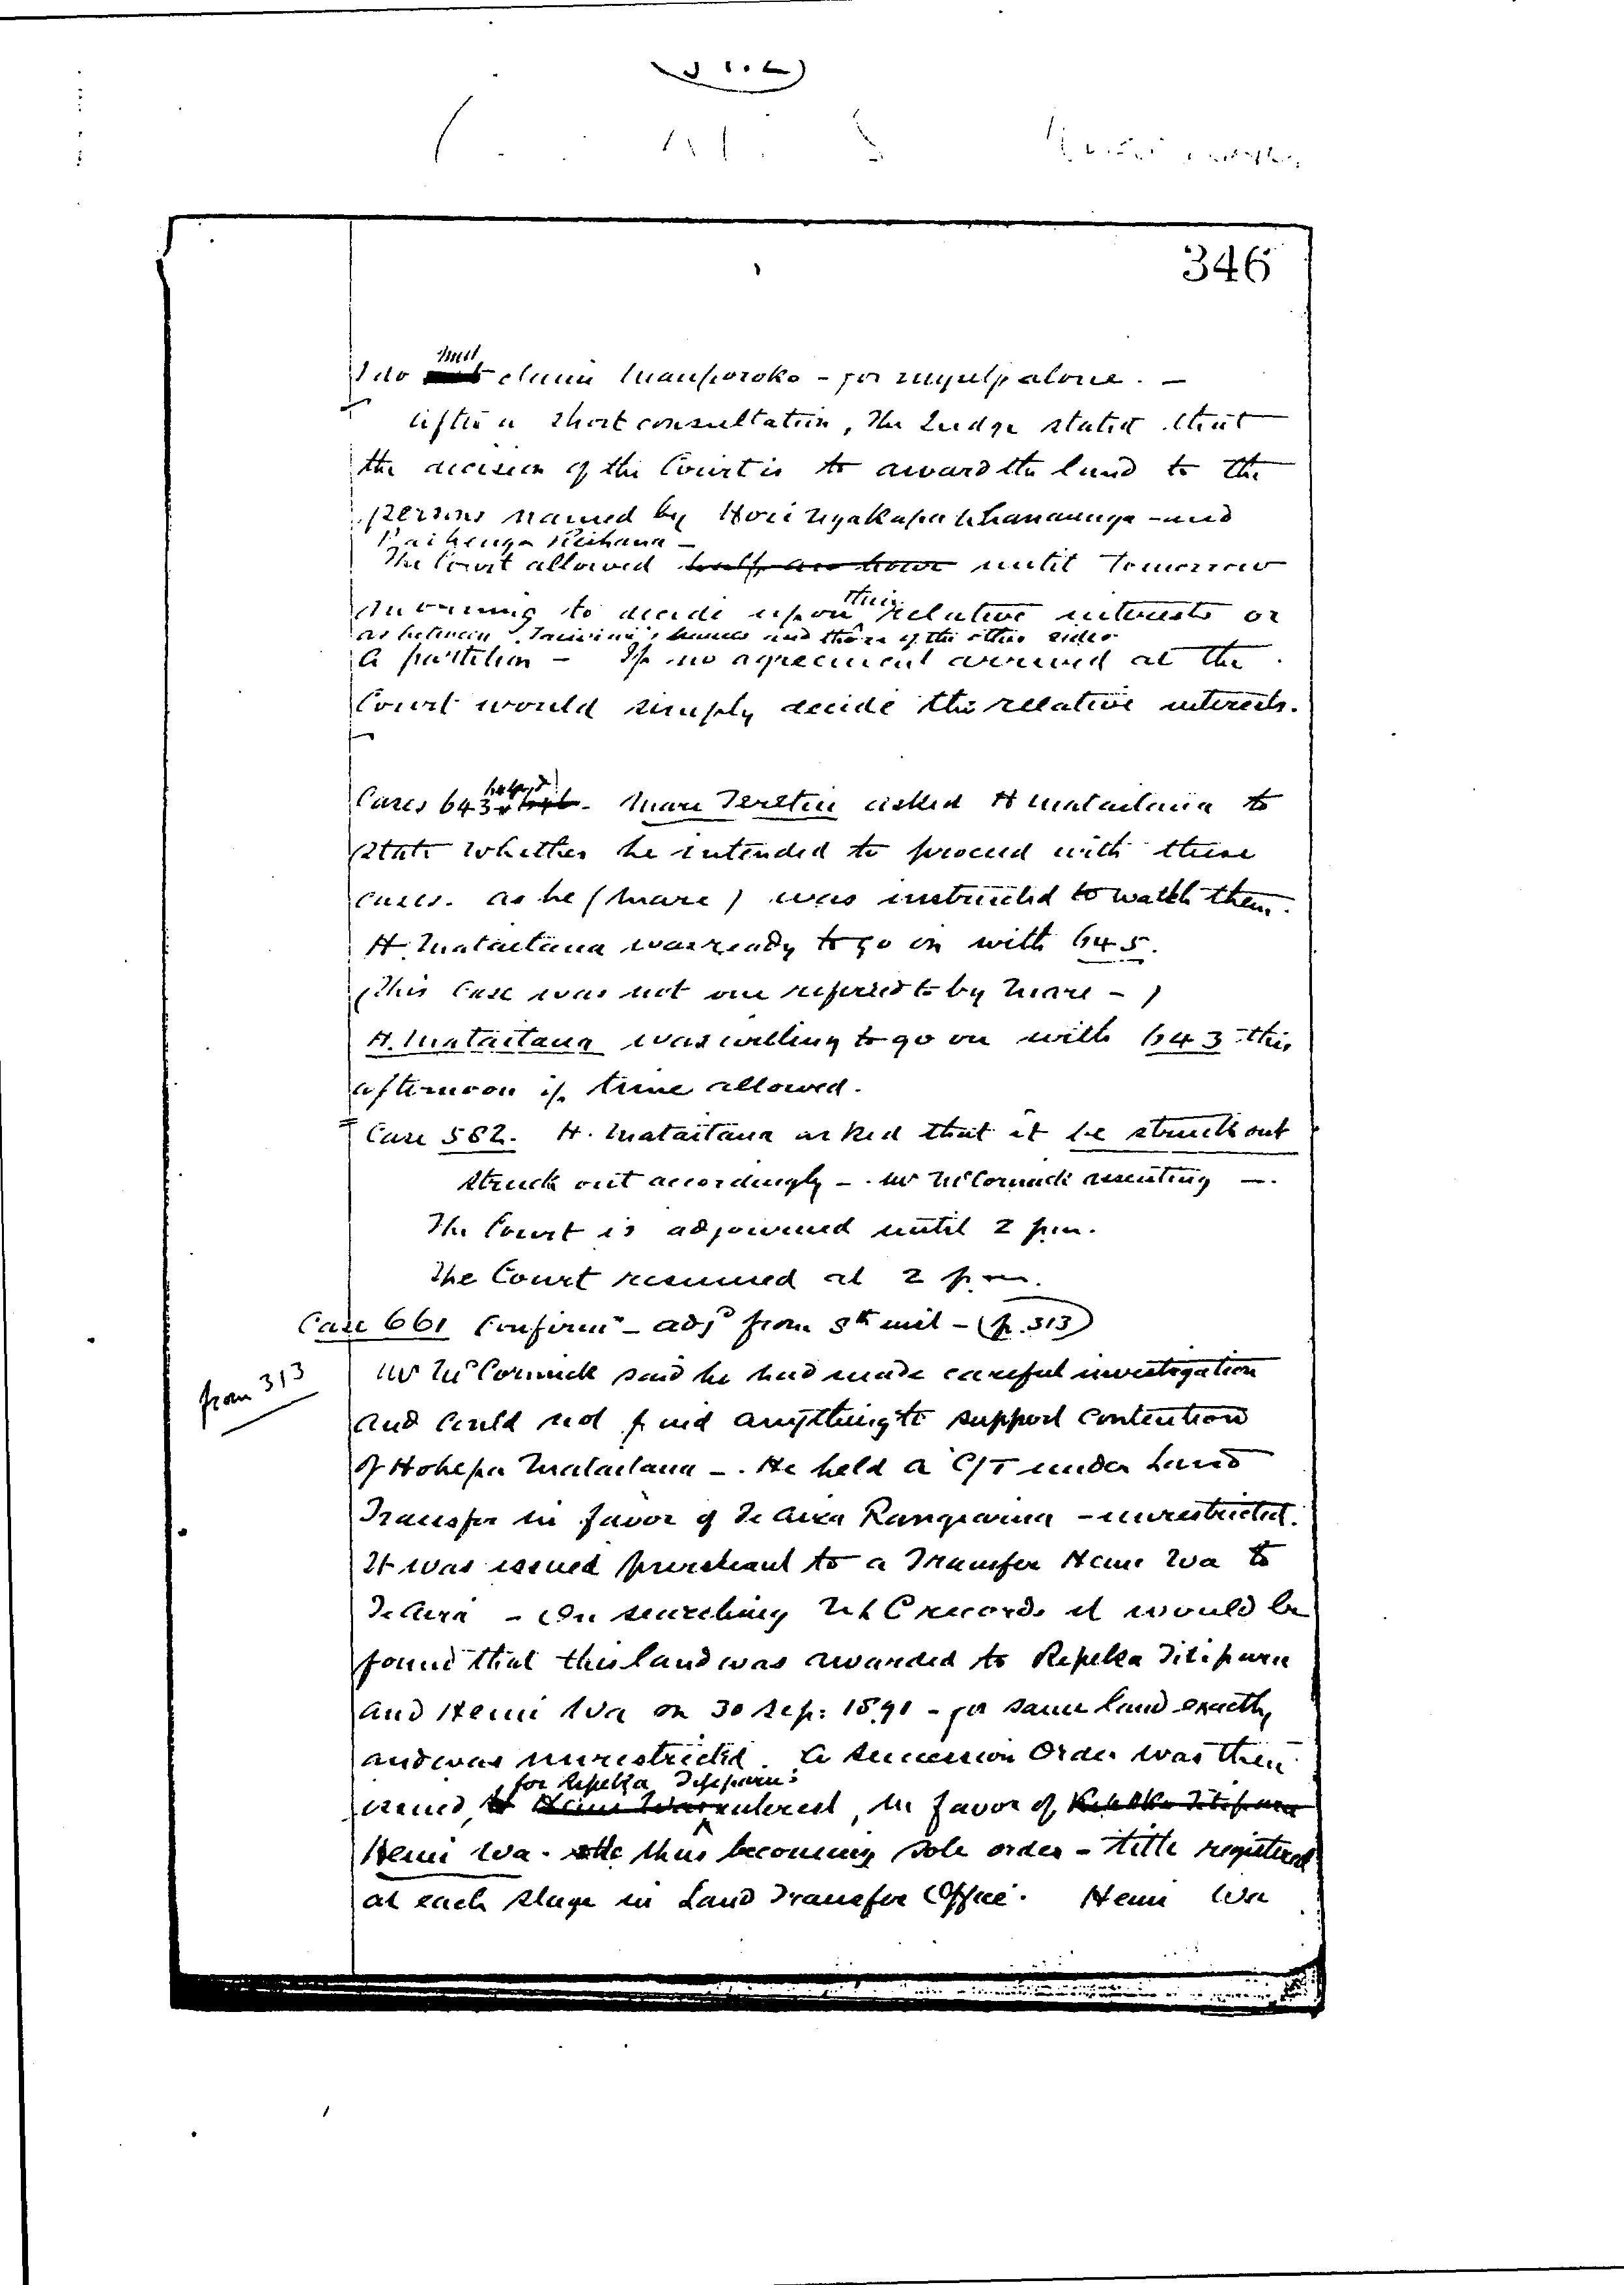 346
I do not claim Mauporoko - for myself alone. -
After a short consultation, the Judge stated that
the decision of the Court is to award the land to the
persons named by Hori Ngakapa Whanaunga - and
Paihenga Reihana -
The Court allowed half an hour until tomorrow
morning to decide upon their relative interests or
as between names and those of the other side
a partition - If no agreement arrived at the
Court would simply decide the relative interests.
Cases 643 Mare Teretiu asked H Mataitaua to
state whether he intended to proceed with these
cases. as he (Mare) was instructed to watch them.
H. Mataitaua was ready to go on with 645.
(This case was not one referred to by Mare - )
H. Mataitaua was willing to go on with 643 this
afternoon if time allowed.
Case 562. H. Mataitaua asked that it be struck out
Struck out accordingly - Mr McCormick assenting -
The Court is adjourned until 2 p.m.
The Court resumed at 2 p.m.
Case 661 Confirmn - adjd from 8th inst - (p. 313)
from 313
Mr McCormick said he had made careful investigation
and could not find anything to support contention
of Hohepa Mataitaua -. He held a C/T under Land
Transfer in favor of Te Aira Rangiarua - unrestricted.
It was issued pursuant to a Transfer Hemi Wa to
Te Aira - On searching N L C records it would be
found that this land was awarded to Repeka Titipara
and Hemi Wa on 30 Sep: 1891 - for same land exactly
and was unrestricted. A Succession Order was then
for Repeka Titipara's
issued, interest, in favor of Repeka Titipara
Hemi Wa - thus becoming sole order - title registered
at each stage in Land Transfer Office. Hemi Wa